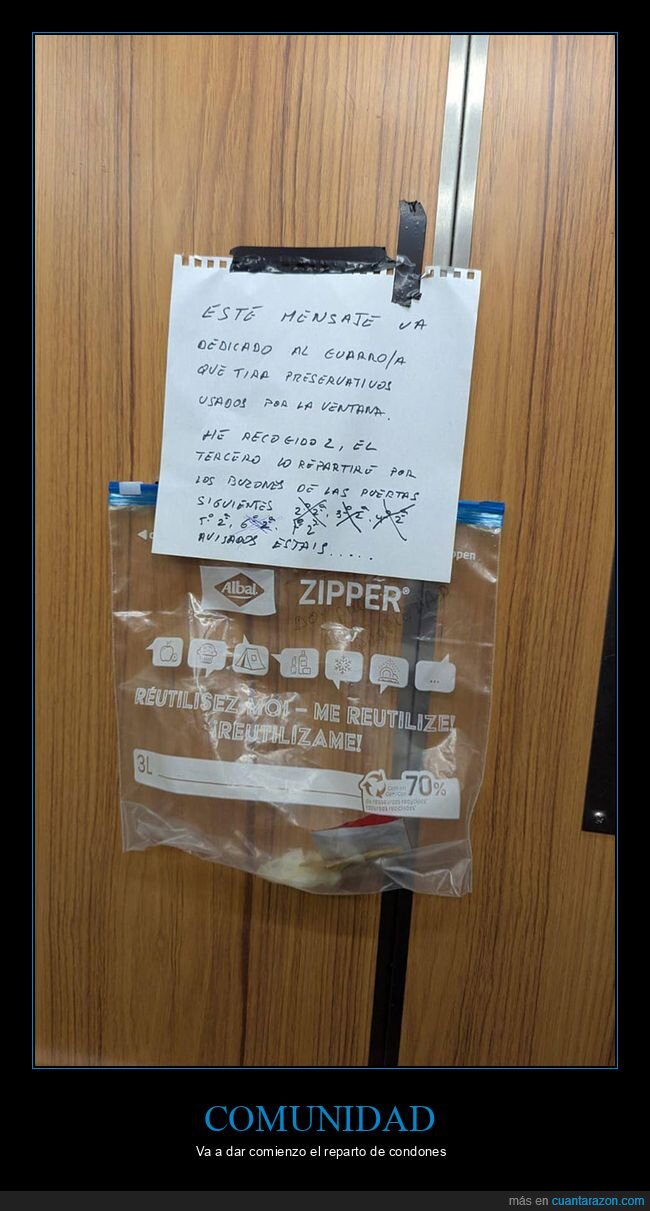 ESTE MENSAJE VA
DEDICADO AL GUARRO/A
QUE TIRA PRESERVATIVOS
USADOS POR LA VENTANA.
HE RECOGIDO 2, EL
TERCERO LO REPARTIRÉ POR
LOS BUZONES DE LAS PUERTAS
SIGUIENTES 2º 2ª, 3º 2ª, 4º 2ª
5º 2ª, 6º 2ª,
AVISADOS ESTAIS.....
open
Albal
ZIPPER®
RÉUTILISEZ-MOI – ME REUTILIZE!
¡REUTILÍZAME!
3L
70%
COMUNIDAD
Va a dar comienzo el reparto de condones
más en cuantarazon.com